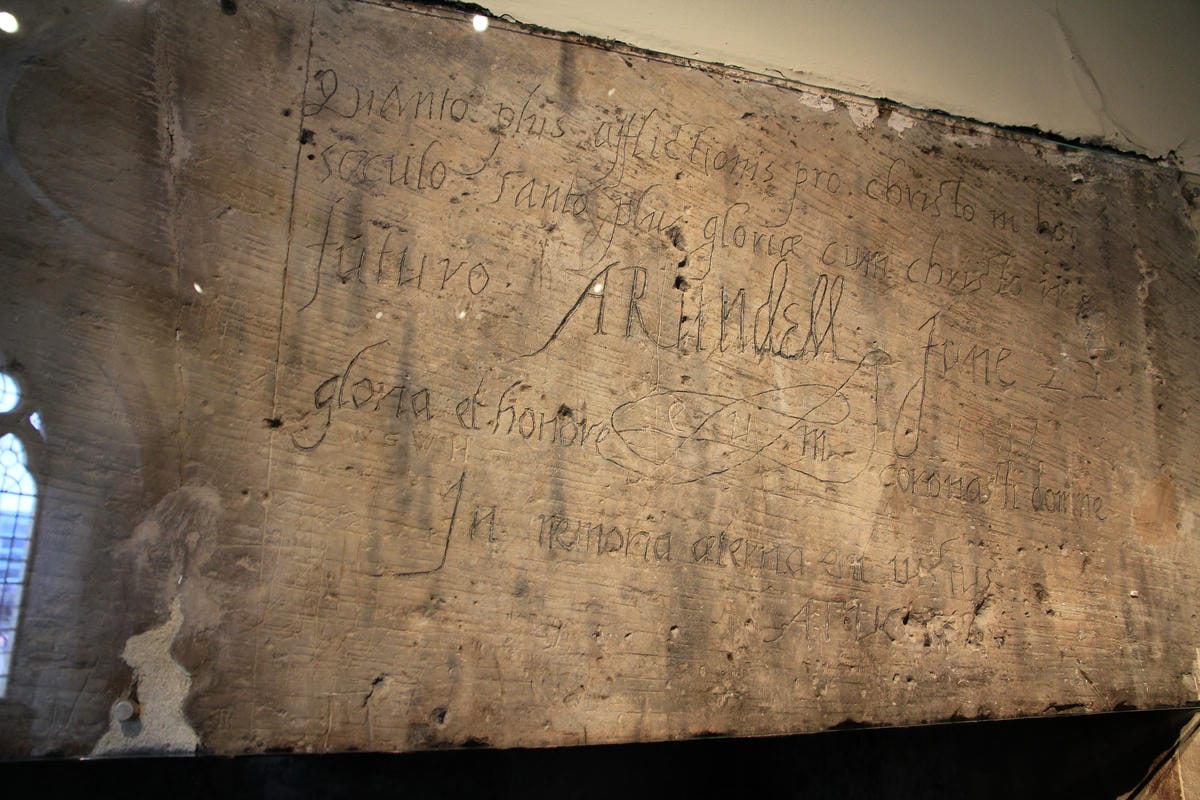 Quanto plus afflictionis pro christo in hoc
sæculo tanto plus gloriæ cum christo in
futuro ARundell June 22
1587
gloria et honore eum coronasti domine
W S W H
In memoria æterna erit iustus